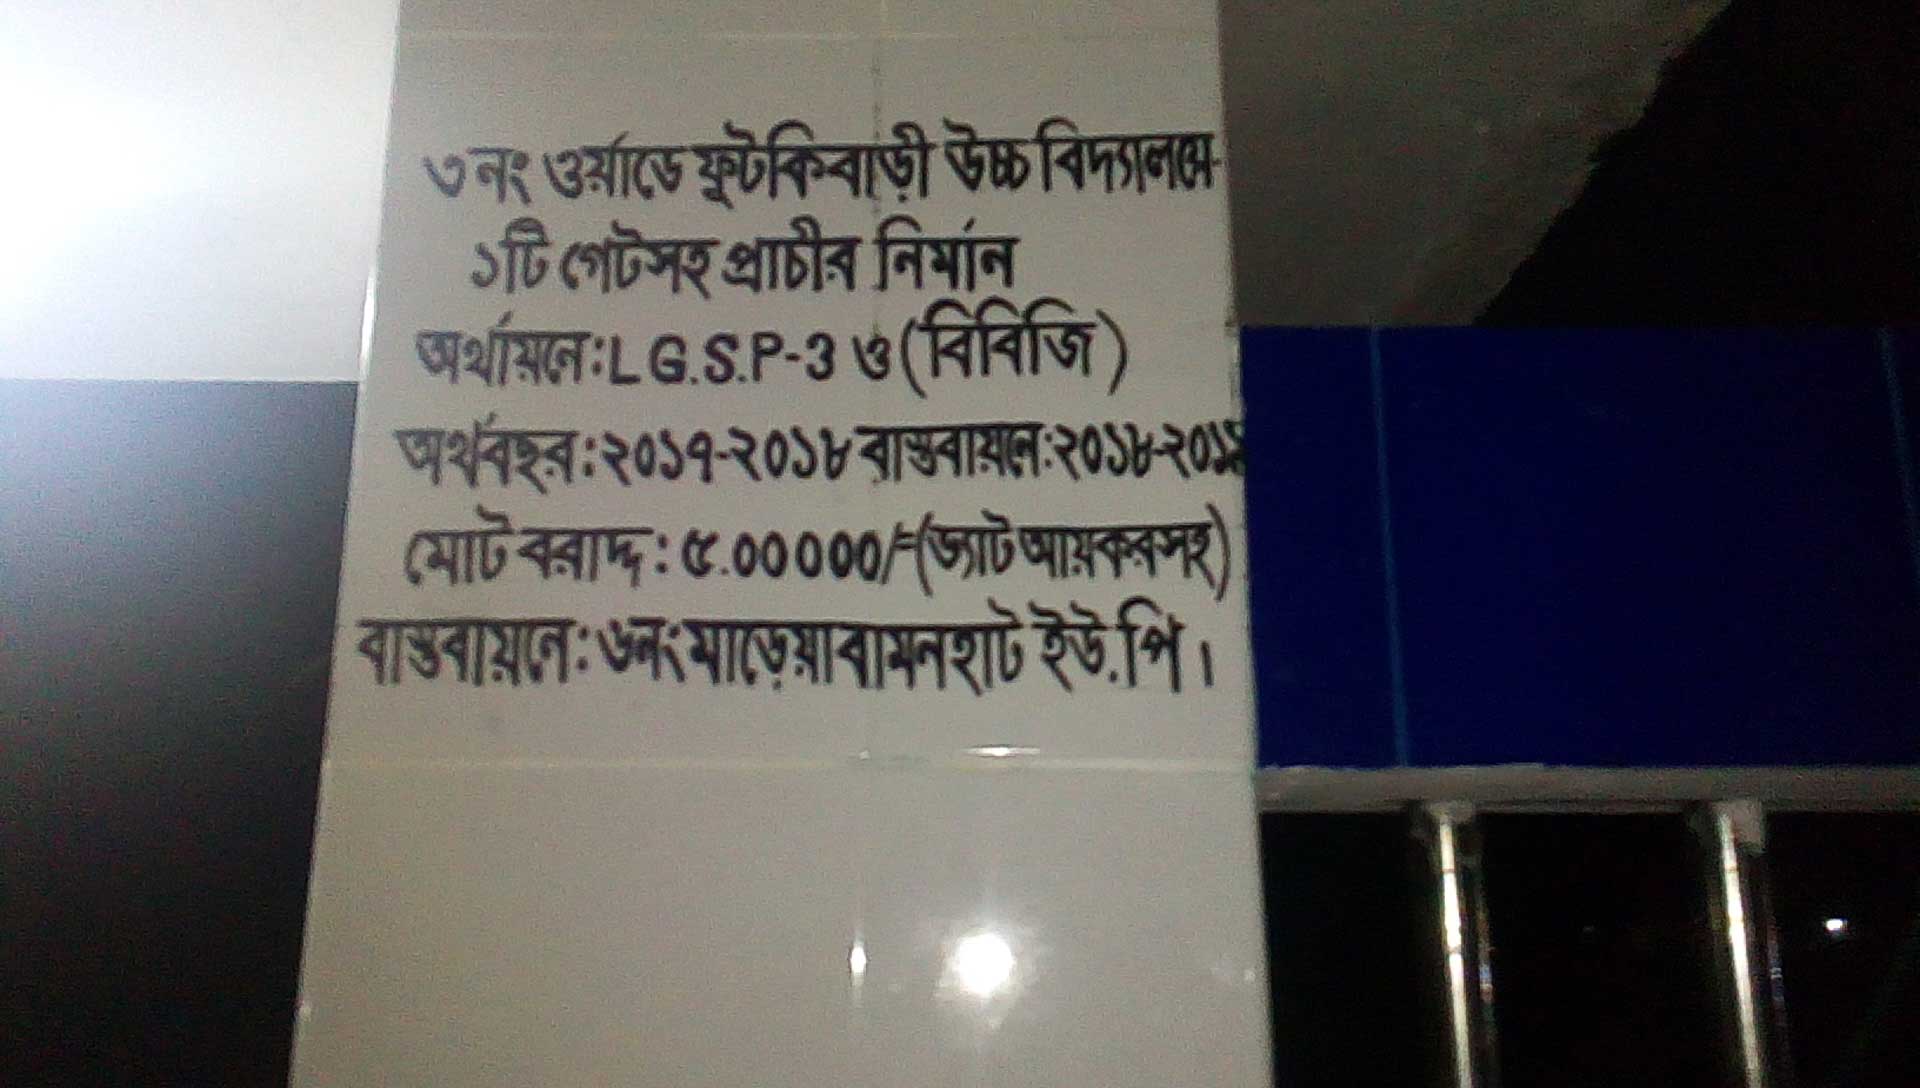 ৩নং ওর্য়াডে ফুটকিবাড়ী উচ্চ বিদ্যালয়ে
১টি গেটসহ প্রাচীর নির্মান
অর্থায়নে: L.G.S.P-3 ও (বিবিজি)
অর্থবছর: ২০১৭-২০১৮ বাস্তবায়নে: ২০১৮-২০১৯
মোট বরাদ্দ: ৫.০০০০০/= (ভ্যাট আয়করসহ)
বাস্তবায়নে: ৬নং মাড়েয়া বামনহাট ইউ.পি।